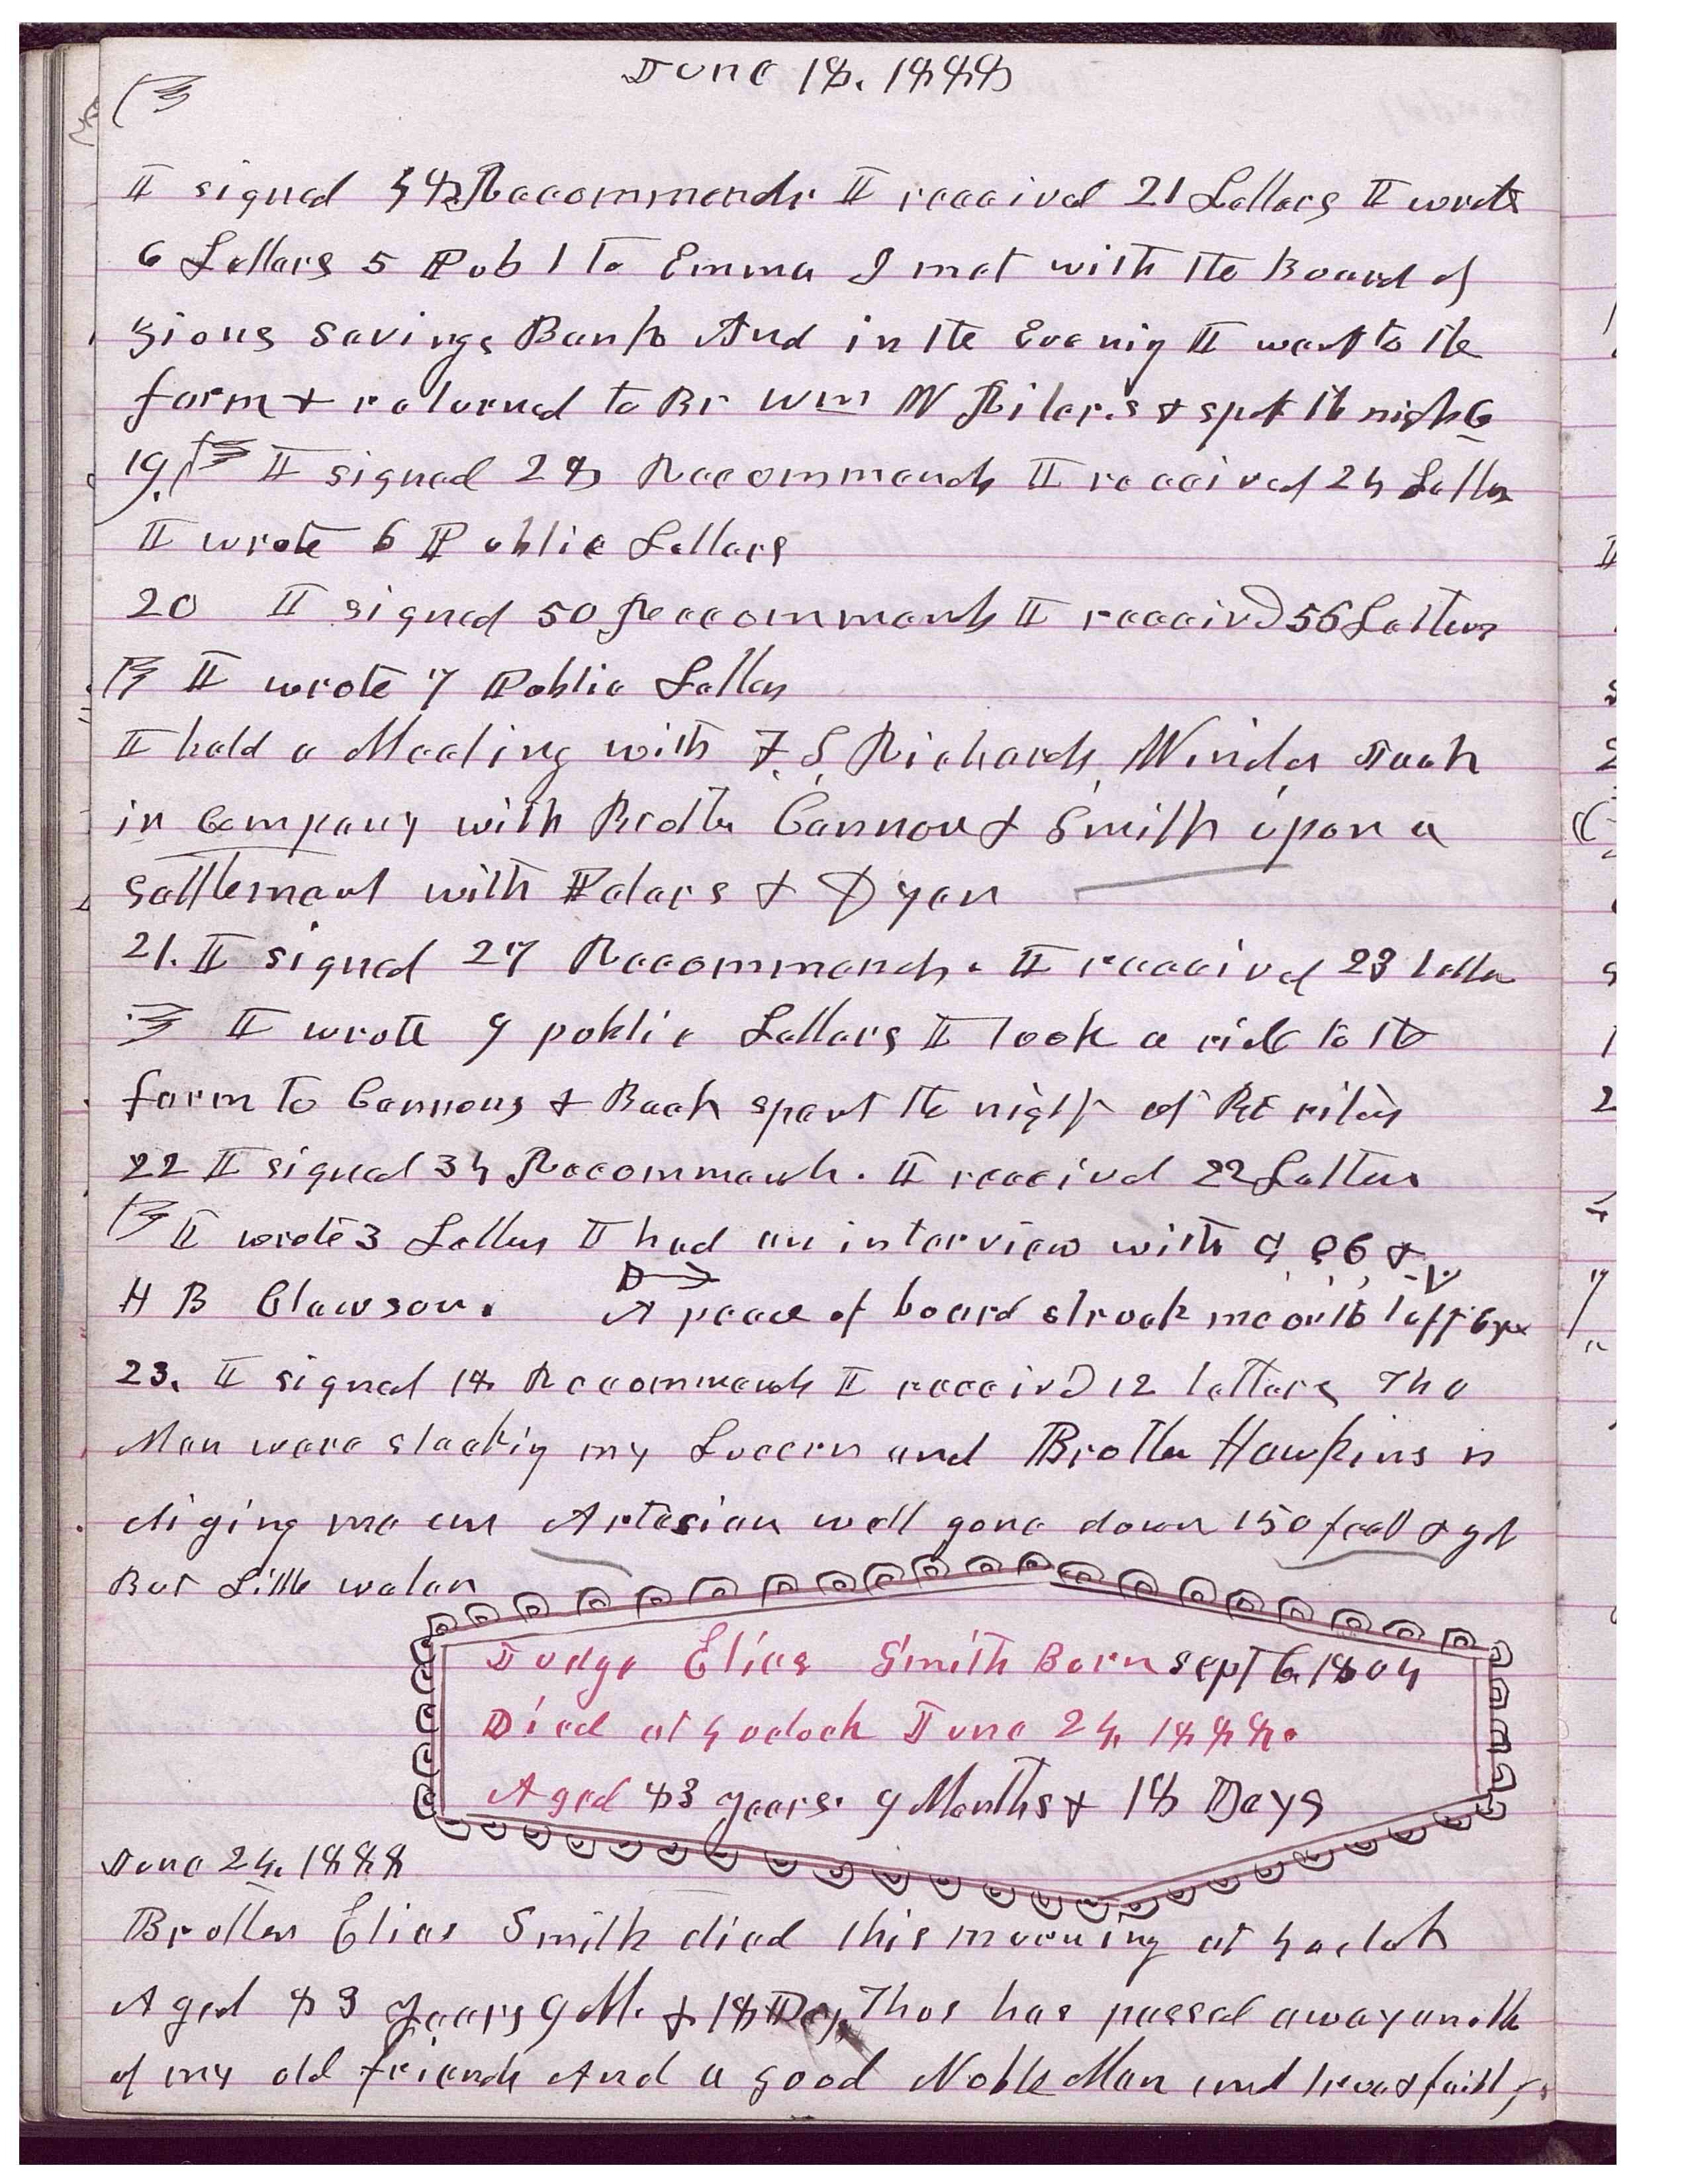 June 18, 1888
I signed 48 Recommends I received 21 Letters I wrote
6 Letters 5 Pub 1 to Emma I met with the Board of
Zions Savings Bank And in the Evenig I went to the
farm & returned to Br Wm W Riter.s & spt th night
19. I signed 28 Recommends I received 24 Letters
I wrote 6 Public Letters
20 I signed 50 Recommends I receivd 56 Letters
I wrote 7 Public Letters
I held a Meeting with F. S. Richards, Winder Jack
in Company with Brother Cannon & Smith upon a
settlement with Peters & Dyer
21. I signed 27 Recommends. I received 23 letter
I wrote 9 public Letters I took a ride to the
farm to Cannons & Back spent the night at Br riters
22 I signed 34 Recommends. I received 22 Letters
I wrote 3 Letters I had an interview with &
H B Clawson. A peace of board struck me on th left Eye
23. I signed 18 Recommends I receivd 12 letters The
Men were stackig my Lucern and Brother Hawkins is
diging me an Artesian well gone down 150 feet & got
But Little water
Judge Elias Smith Born Sept 6, 1804
Died at 4 oclock June 24, 1888.
Aged 83 years. 9 Months & 18 Days
June 24, 1888
Brother Elias Smith died this morning at 4 oclok
Aged 83 Years 9 M. & 18 Days Thus has passed away anoth
of my old friends And a good Noble Man and true & faithf